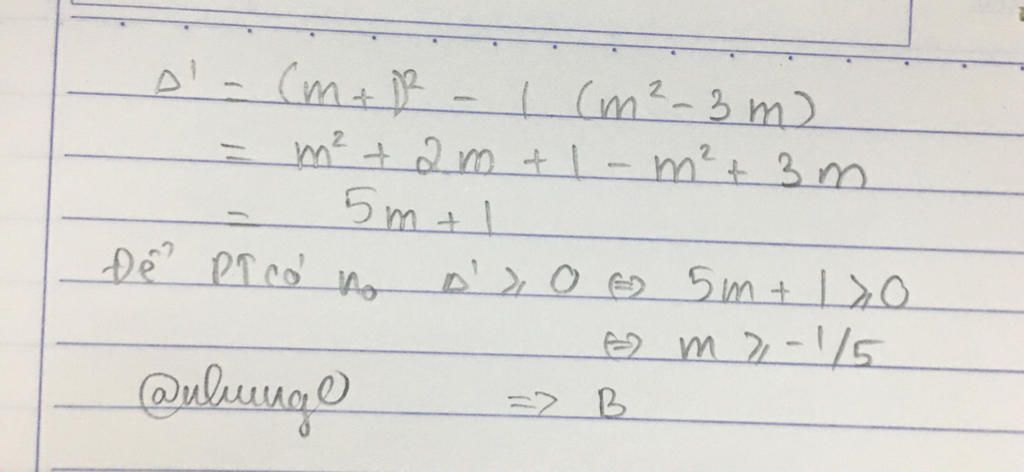 Δ' = (m+1)² - 1 (m² - 3m)
= m² + 2m + 1 - m² + 3m
= 5m + 1
Để PT có no Δ' ≥ 0 ⇔ 5m + 1 ≥ 0
⇔ m ≥ -1/5
@nhung0 => B